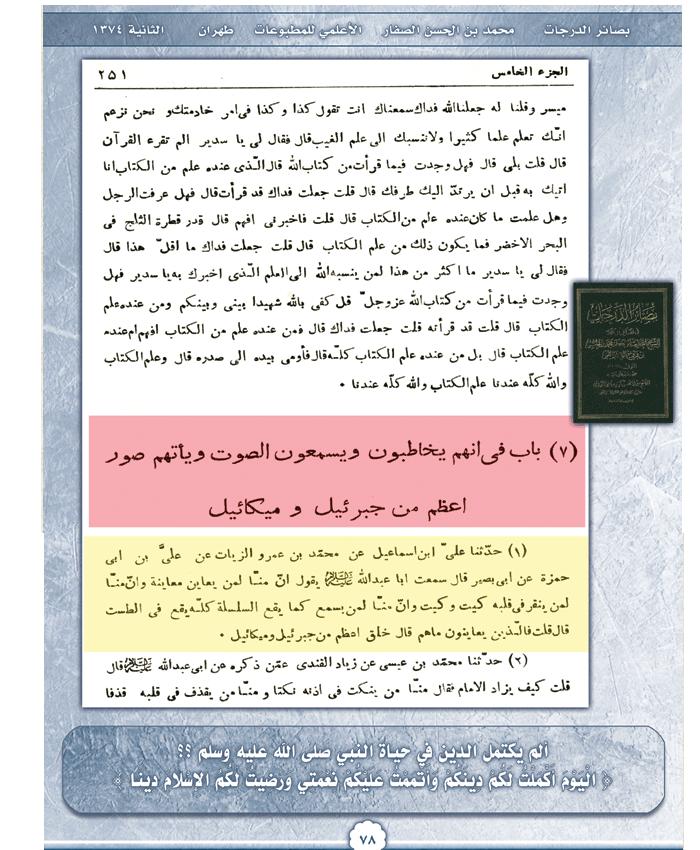 بصائر الدرجات محمد بن الحسن الصفار الأعلمي للمطبوعات طهران الثانية ١٣٧٤
الجزء الخامس ٢٥١
ميسر وقلنا له جعلنا الله فداك سمعناك انت تقول كذا وكذا في امر خادمتك و نحن نزعم
انّك تعلم علما كثيرا ولا ننسبك الى علم الغيب قال فقال لى يا سدير الم تقرء القرآن
قال قلت بلى قال فهل وجدت فيما قرأت من كتاب الله قال الّذى عنده علم من الكتاب انا
اتيك به قبل ان يرتدّ اليك طرفك قال قلت جعلت فداك قد قرأت قال فهل عرفت الرجل
وهل علمت ما كان عنده علم من الكتاب قال قلت فاخبرنى افهم قال قدر قطرة الثلج فى
البحر الاخضر فما يكون ذلك من علم الكتاب قال قلت جعلت فداك ما اقلّ هذا قال
فقال لى يا سدير ما اكثر من هذا لمن ينسبه الله الى العلم الّذى اخبرك به يا سدير فهل
وجدت فيما قرأت من كتاب الله عزوجلّ قل كفى بالله شهيدا بينى وبينكم ومن عنده علم
الكتاب قال قلت قد قرأته قلت جعلت فداك قال فمن عنده علم من الكتاب افهم ام عنده
علم الكتاب قال بل من عنده علم الكتاب كلّه قال فأومى بيده الى صدره قال وعلم الكتاب
والله كلّه عندنا علم الكتاب والله كلّه عندنا ٠
بصائر الدرجات
(٧) باب فى انهم يخاطبون ويسمعون الصوت ويأتهم صور
اعظم من جبرئيل و ميكائيل
(١) حدّثنا علىّ ابن اسماعيل عن محمّد بن عمرو الزيات عن علىّ بن ابى
حمزة عن ابى بصير قال سمعت ابا عبدالله عليه السلام يقول انّ منّا لمن يعاين معاينة وانّ منّا
لمن ينقر فى قلبه كيت وكيت وانّ منّا لمن يسمع كما يقع السلسلة كلّه يقع فى الطست
قال قلت فالّذين يعاينون ماهم قال خلق اعظم من جبرئيل وميكائيل ٠
(٢) حدّثنا محمّد بن عيسى عن زياد القندى عمّن ذكره عن ابى عبدالله عليه السلام قال
قلت كيف يزاد الامام فقال منّا من ينكت فى اذنه نكتا ومنّا من يقذف فى قلبه قذفا
ألم يكتمل الدين في حياة النبي صلى الله عليه وسلم ؟؟
﴿ الْيَوْمَ أَكْمَلْتُ لَكُمْ دِينَكُمْ وَأَتْمَمْتُ عَلَيْكُمْ نِعْمَتِي وَرَضِيتُ لَكُمُ الإِسْلامَ دِينًا ﴾
٧٨